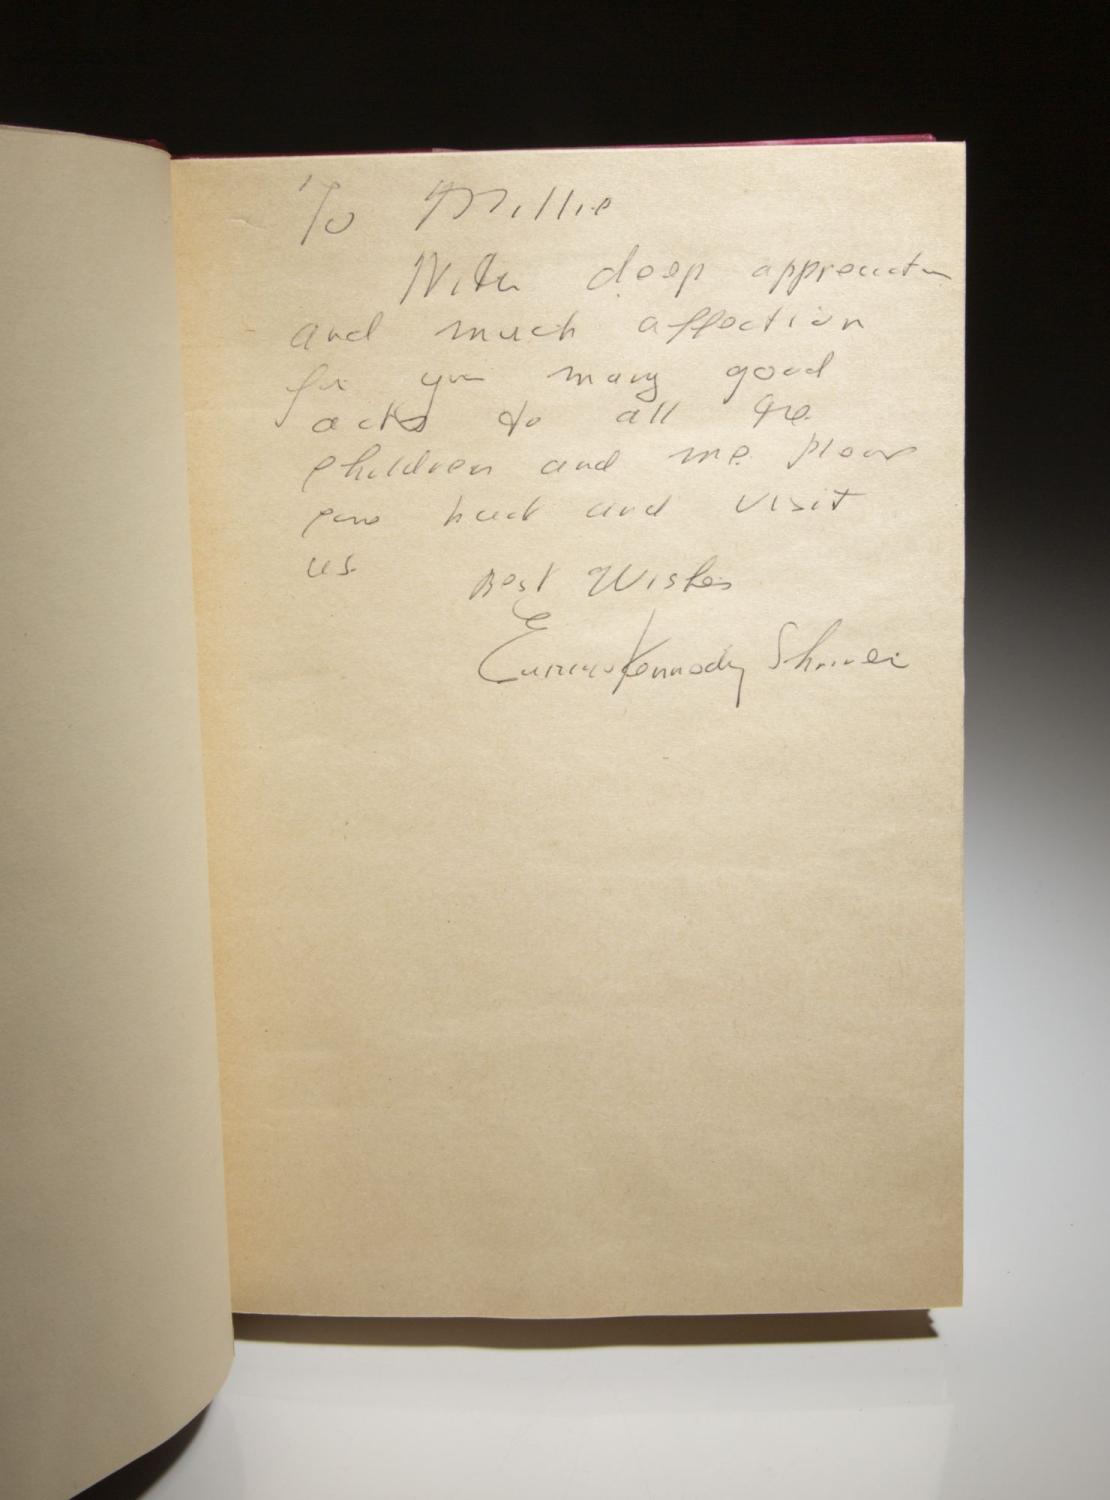 To Millie
With deep appreciation
and much affection
for your many good
acts to all the
children and me please
come back and visit
us.
Best Wishes
Eunice Kennedy Shriver